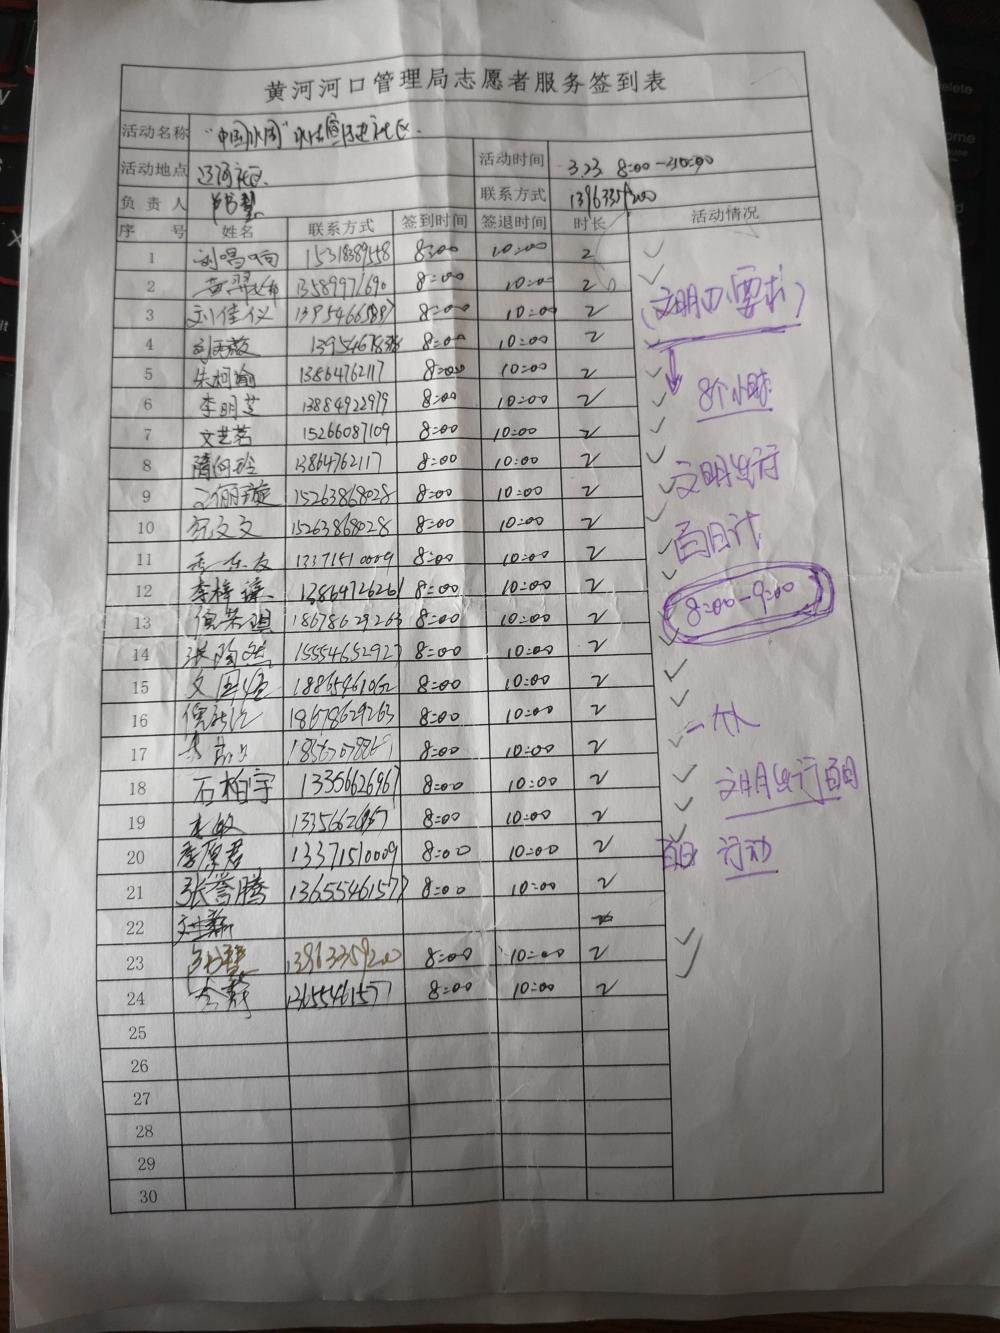 黄河河口管理局志愿者服务签到表
活动名称 "中国水周" 进社区.
活动地点 辽河社区. 活动时间 3.23 8:00-10:00
负责人 联系方式 13963359200
序号 姓名 联系方式 签到时间 签退时间 时长 活动情况
1 刘唱响 8:00 10:00 2
2 13589971690 8:00 10:00 2
3 刘佳仪 8:00 10:00 2
4 8:00 10:00 2
5 朱柯瑜 13864762117 8:00 10:00 2
6 李明芝 13884922979 8:00 10:00 2
7 文艺茗 15266087109 8:00 10:00 2
8 隋向玲 13864762117 8:00 10:00 2
9 15263868028 8:00 10:00 2
10 倪文文 15263868028 8:00 10:00 2
11 13371510009 8:00 10:00 2
12 李梓 13864726261 8:00 10:00 2
13 18678629263 8:00 10:00 2
14 15554652927 8:00 10:00 2
15 18865461062 8:00 10:00 2
16 18678629263 8:00 10:00 2
17 8:00 10:00 2
18 石柏宇 13356626967 8:00 10:00 2
19 8:00 10:00 2
20 季厚君 13371510009 8:00 10:00 2
21 张誉腾 13655461577 8:00 10:00 2
22
23 13963359200 8:00 10:00 2
24 13655461577 8:00 10:00 2
25
26
27
28
29
30
(文明办要求)
8个小时
文明出行
百日计
8:00-9:00
一大人
文明出行百日
百日 行动